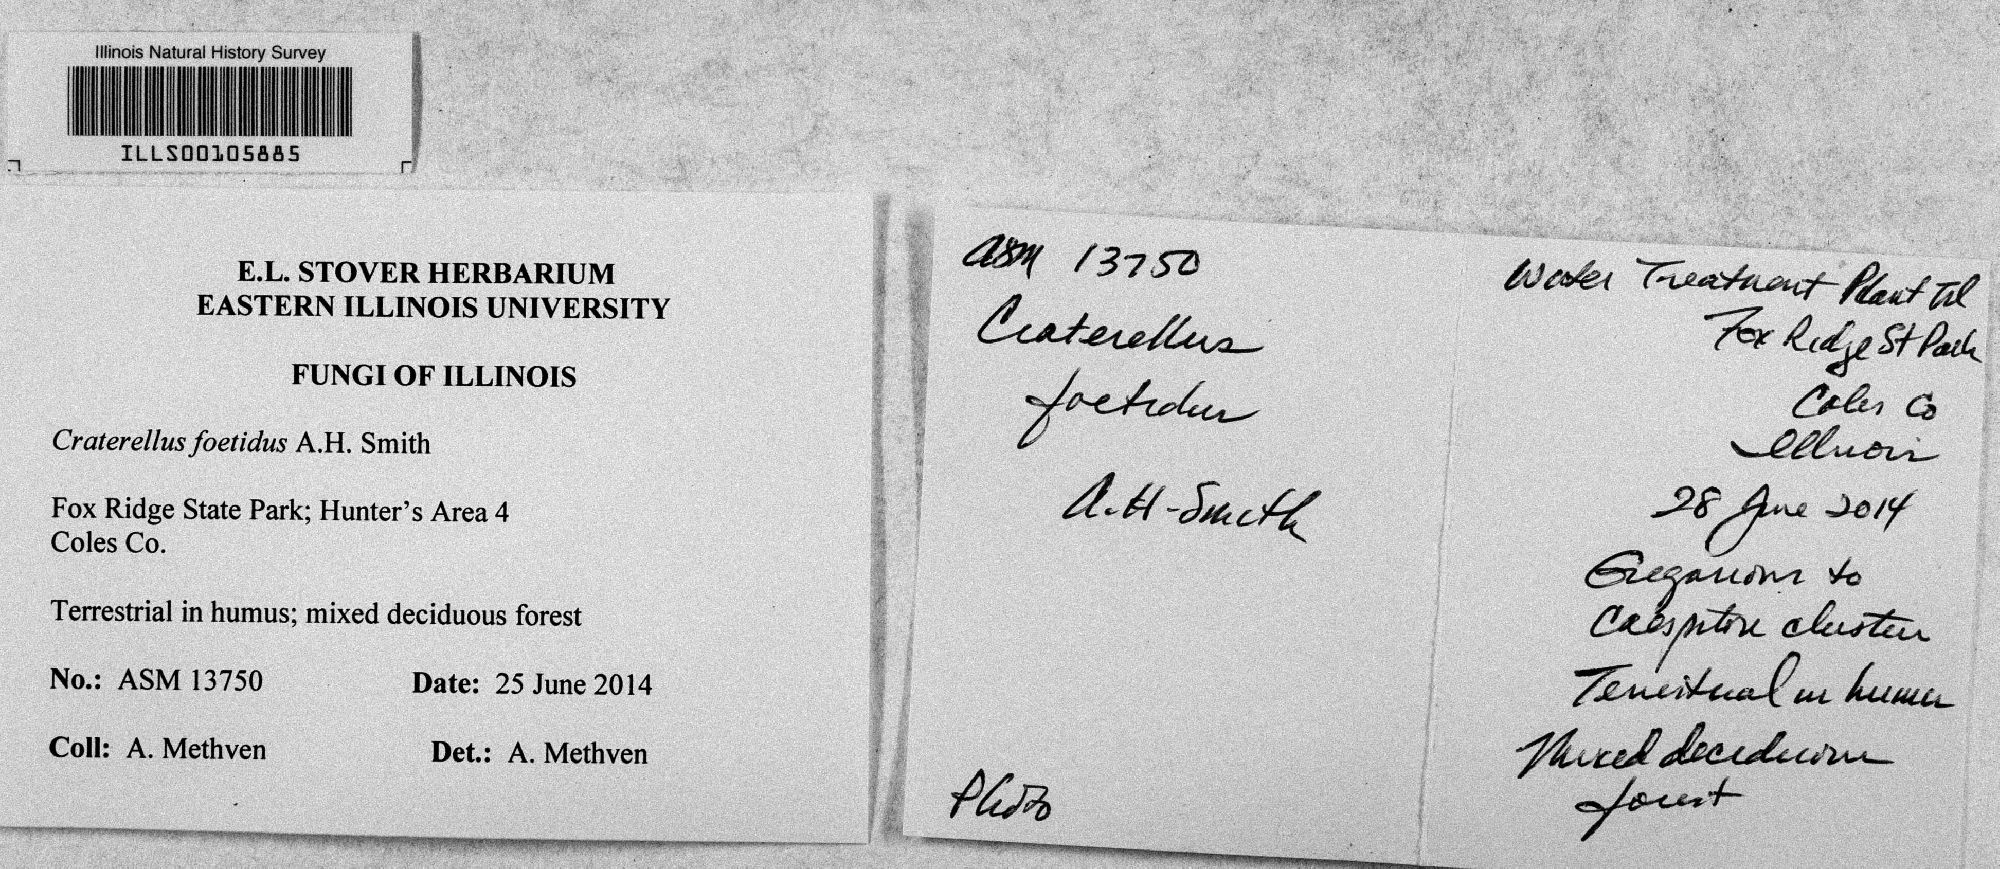 Illinois Natural History Survey
ILLS00105885
E.L. STOVER HERBARIUM
EASTERN ILLINOIS UNIVERSITY
FUNGI OF ILLINOIS
Craterellus foetidus A.H. Smith
Fox Ridge State Park; Hunter's Area 4
Coles Co.
Terrestrial in humus; mixed deciduous forest
No.: ASM 13750 Date: 25 June 2014
Coll: A. Methven Det.: A. Methven
ASM 13750
Craterellus
foetidus
A.H. Smith
Photo
Water Treatment Plant Trl
Fox Ridge St Park
Coles Co
Illinois
28 June 2014
Gregarious to
Caespitose cluster
Terrestrial in humus
Mixed deciduous
forest